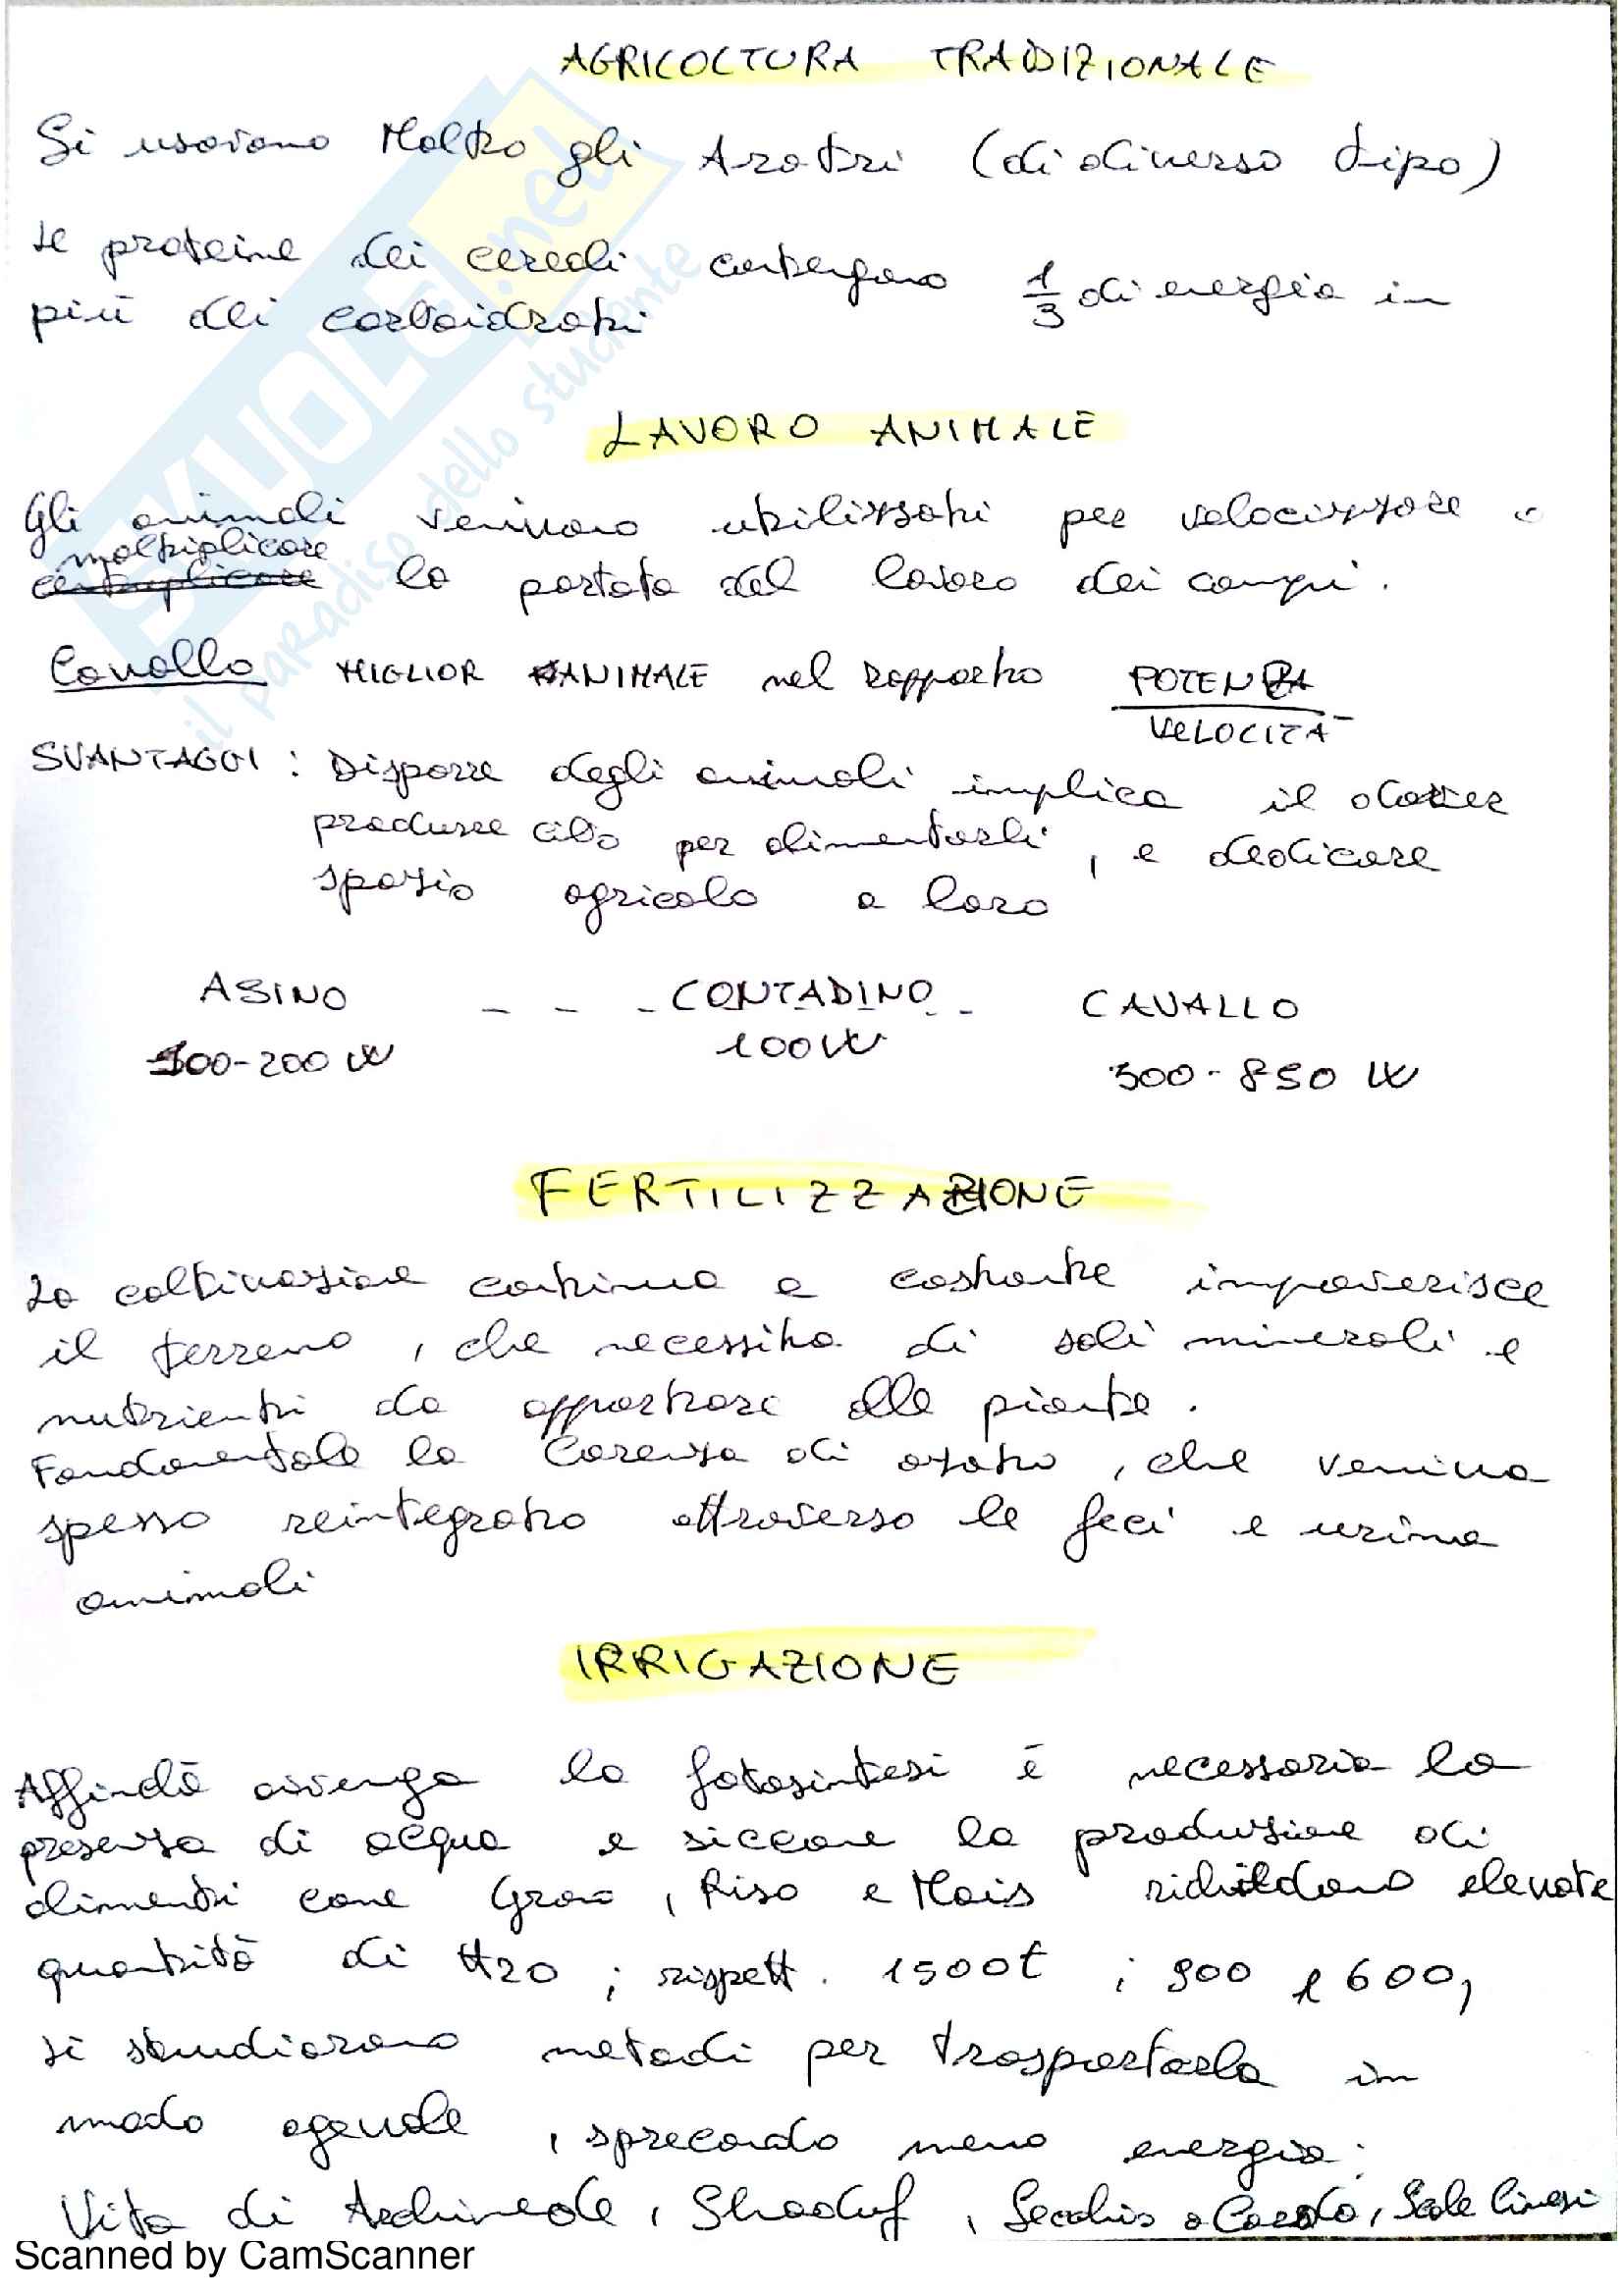 AGRICOLTURA TRADIZIONALE
Si usavano Molto gli Aratri (di diverso tipo)
Le proteine dei cereali contengono 1/3 di energia in
più dei carboidrati
LAVORO ANIMALE
Gli animali venivano utilizzati per velocizzare e
moltiplicare
centuplicare la portata del lavoro dei campi.
Cavallo MIGLIOR ANIMALE nel Rapporto POTENZA
VELOCITÀ
SVANTAGGI : Disporre degli animali implica il dover
produrre cibo per alimentarli, e dedicare
spazio agricolo a loro
ASINO - - - CONTADINO - - CAVALLO
100-200 W 100W 500-850 W
FERTILIZZAZIONE
La coltivazione continua e costante impoverisce
il terreno, che necessita di sali minerali e
nutrienti da apportare alle piante.
Fondamentale la Carenza di azoto, che veniva
spesso reintegrato attraverso le feci e urina
animali
IRRIGAZIONE
Affinchè avvenga la fotosintesi è necessaria la
presenza di acqua e siccome la produzione di
alimenti come Grano, Riso e Mais richiedono elevate
quantità di H20 ; rispett. 1500t ; 900 e 600,
si studiarono metodi per trasportarla in
modo agevole, sprecando meno energia:
Vite di Archimede, Shaduf, Secchio a Corda, Scale Cinesi
Scanned by CamScanner
SKUOLA.net
il paradiso dello studente